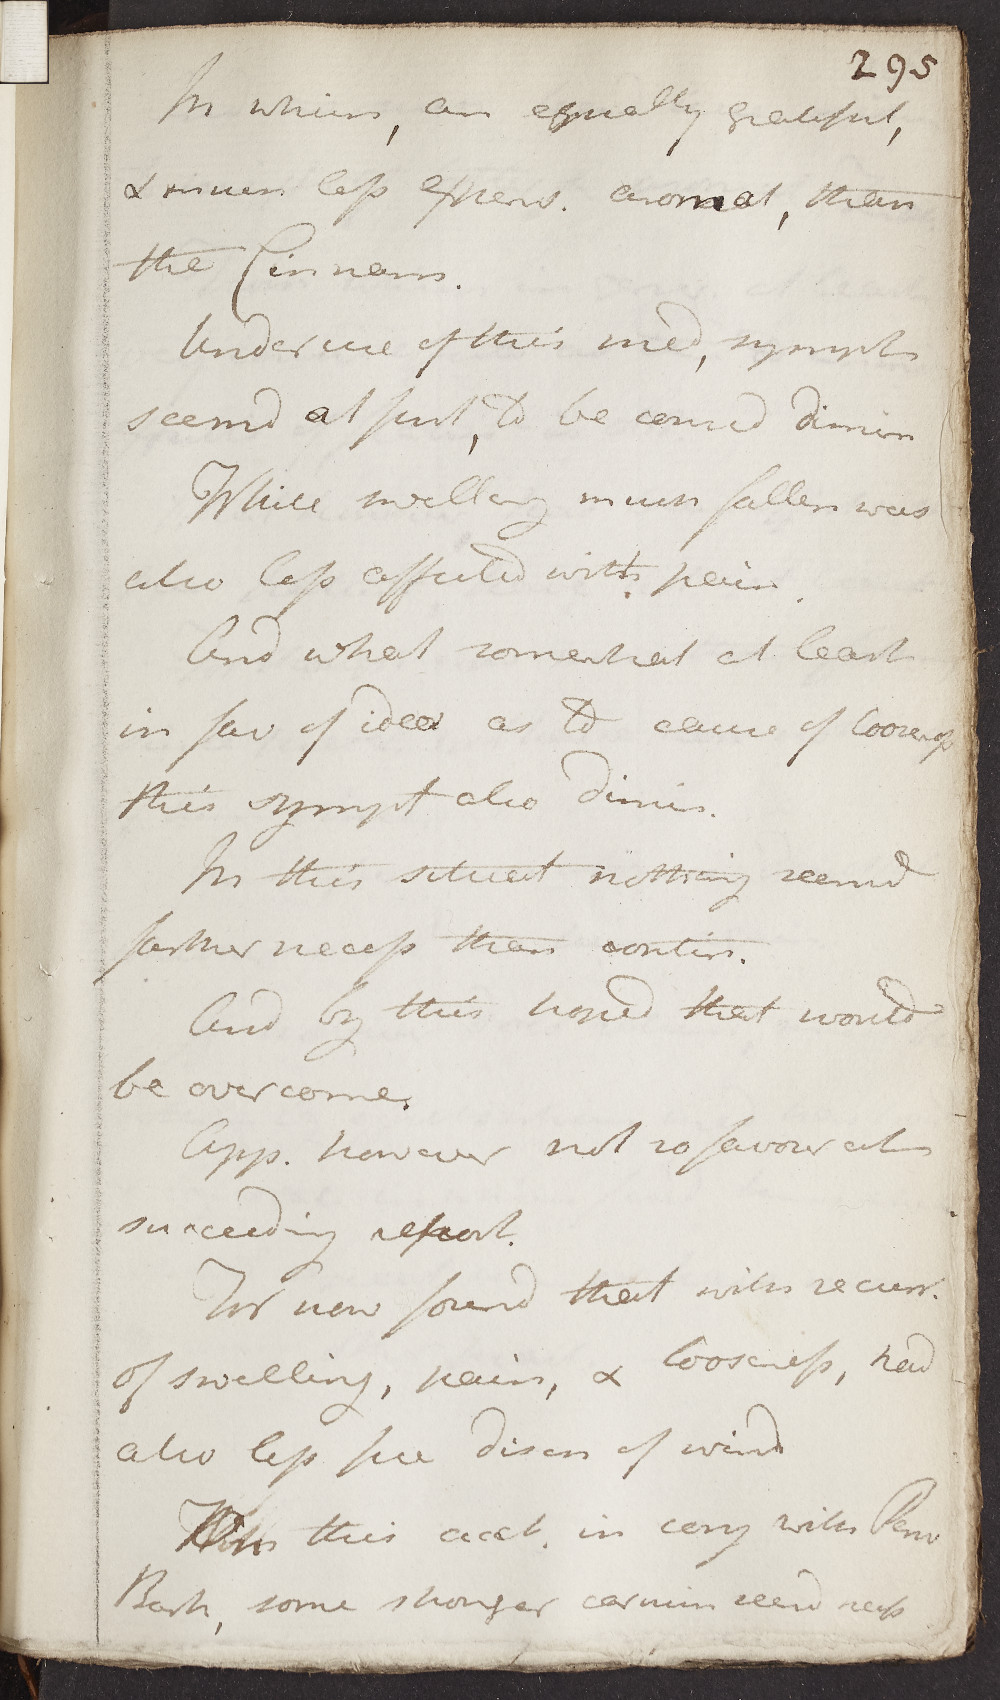 295
In which, an equally grateful,
& much less expens. aromat, than
the Cinnam.
Under use of this med, sympts
seemd at first, to be consid dimin
While swelling much fallen was
also less affected with pain.
And what somewhat at least
in fav of idea as to cause of looseness
this sympt also dimin.
In this situat nothing seemd
farther necess than contin.
And by this hoped that would
be overcome.
App. however not so favour at
succeeding report.
For now found that with recurr.
of swelling, pain, & looseness, had
also less free disch of wind
With this acct. in conj with Peruv
Bark, some stronger carmin seemd necess